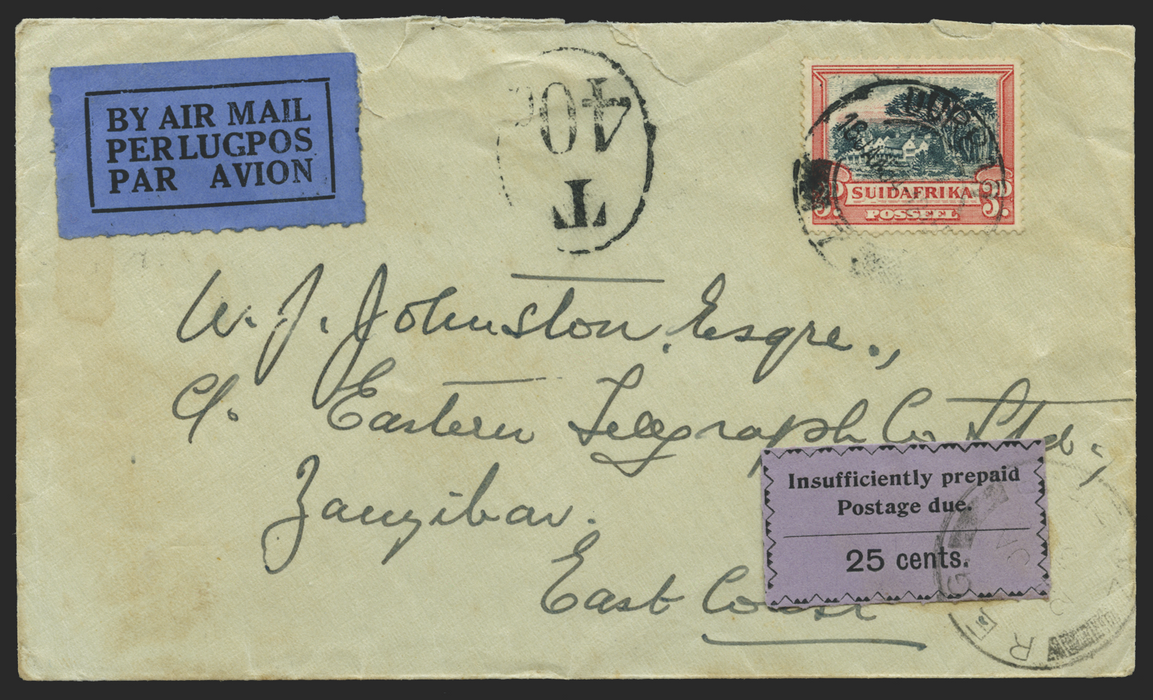 BY AIR MAIL
PER LUGPOS
PAR AVION
40c
T
SUIDAFRIKA
3D 3D
POSSEEL
W. J. Johnston, Esqre.,
c/. Eastern Telegraph Co Ltd.,
Zanzibar.
East Coast
Insufficiently prepaid
Postage due.
25 cents.